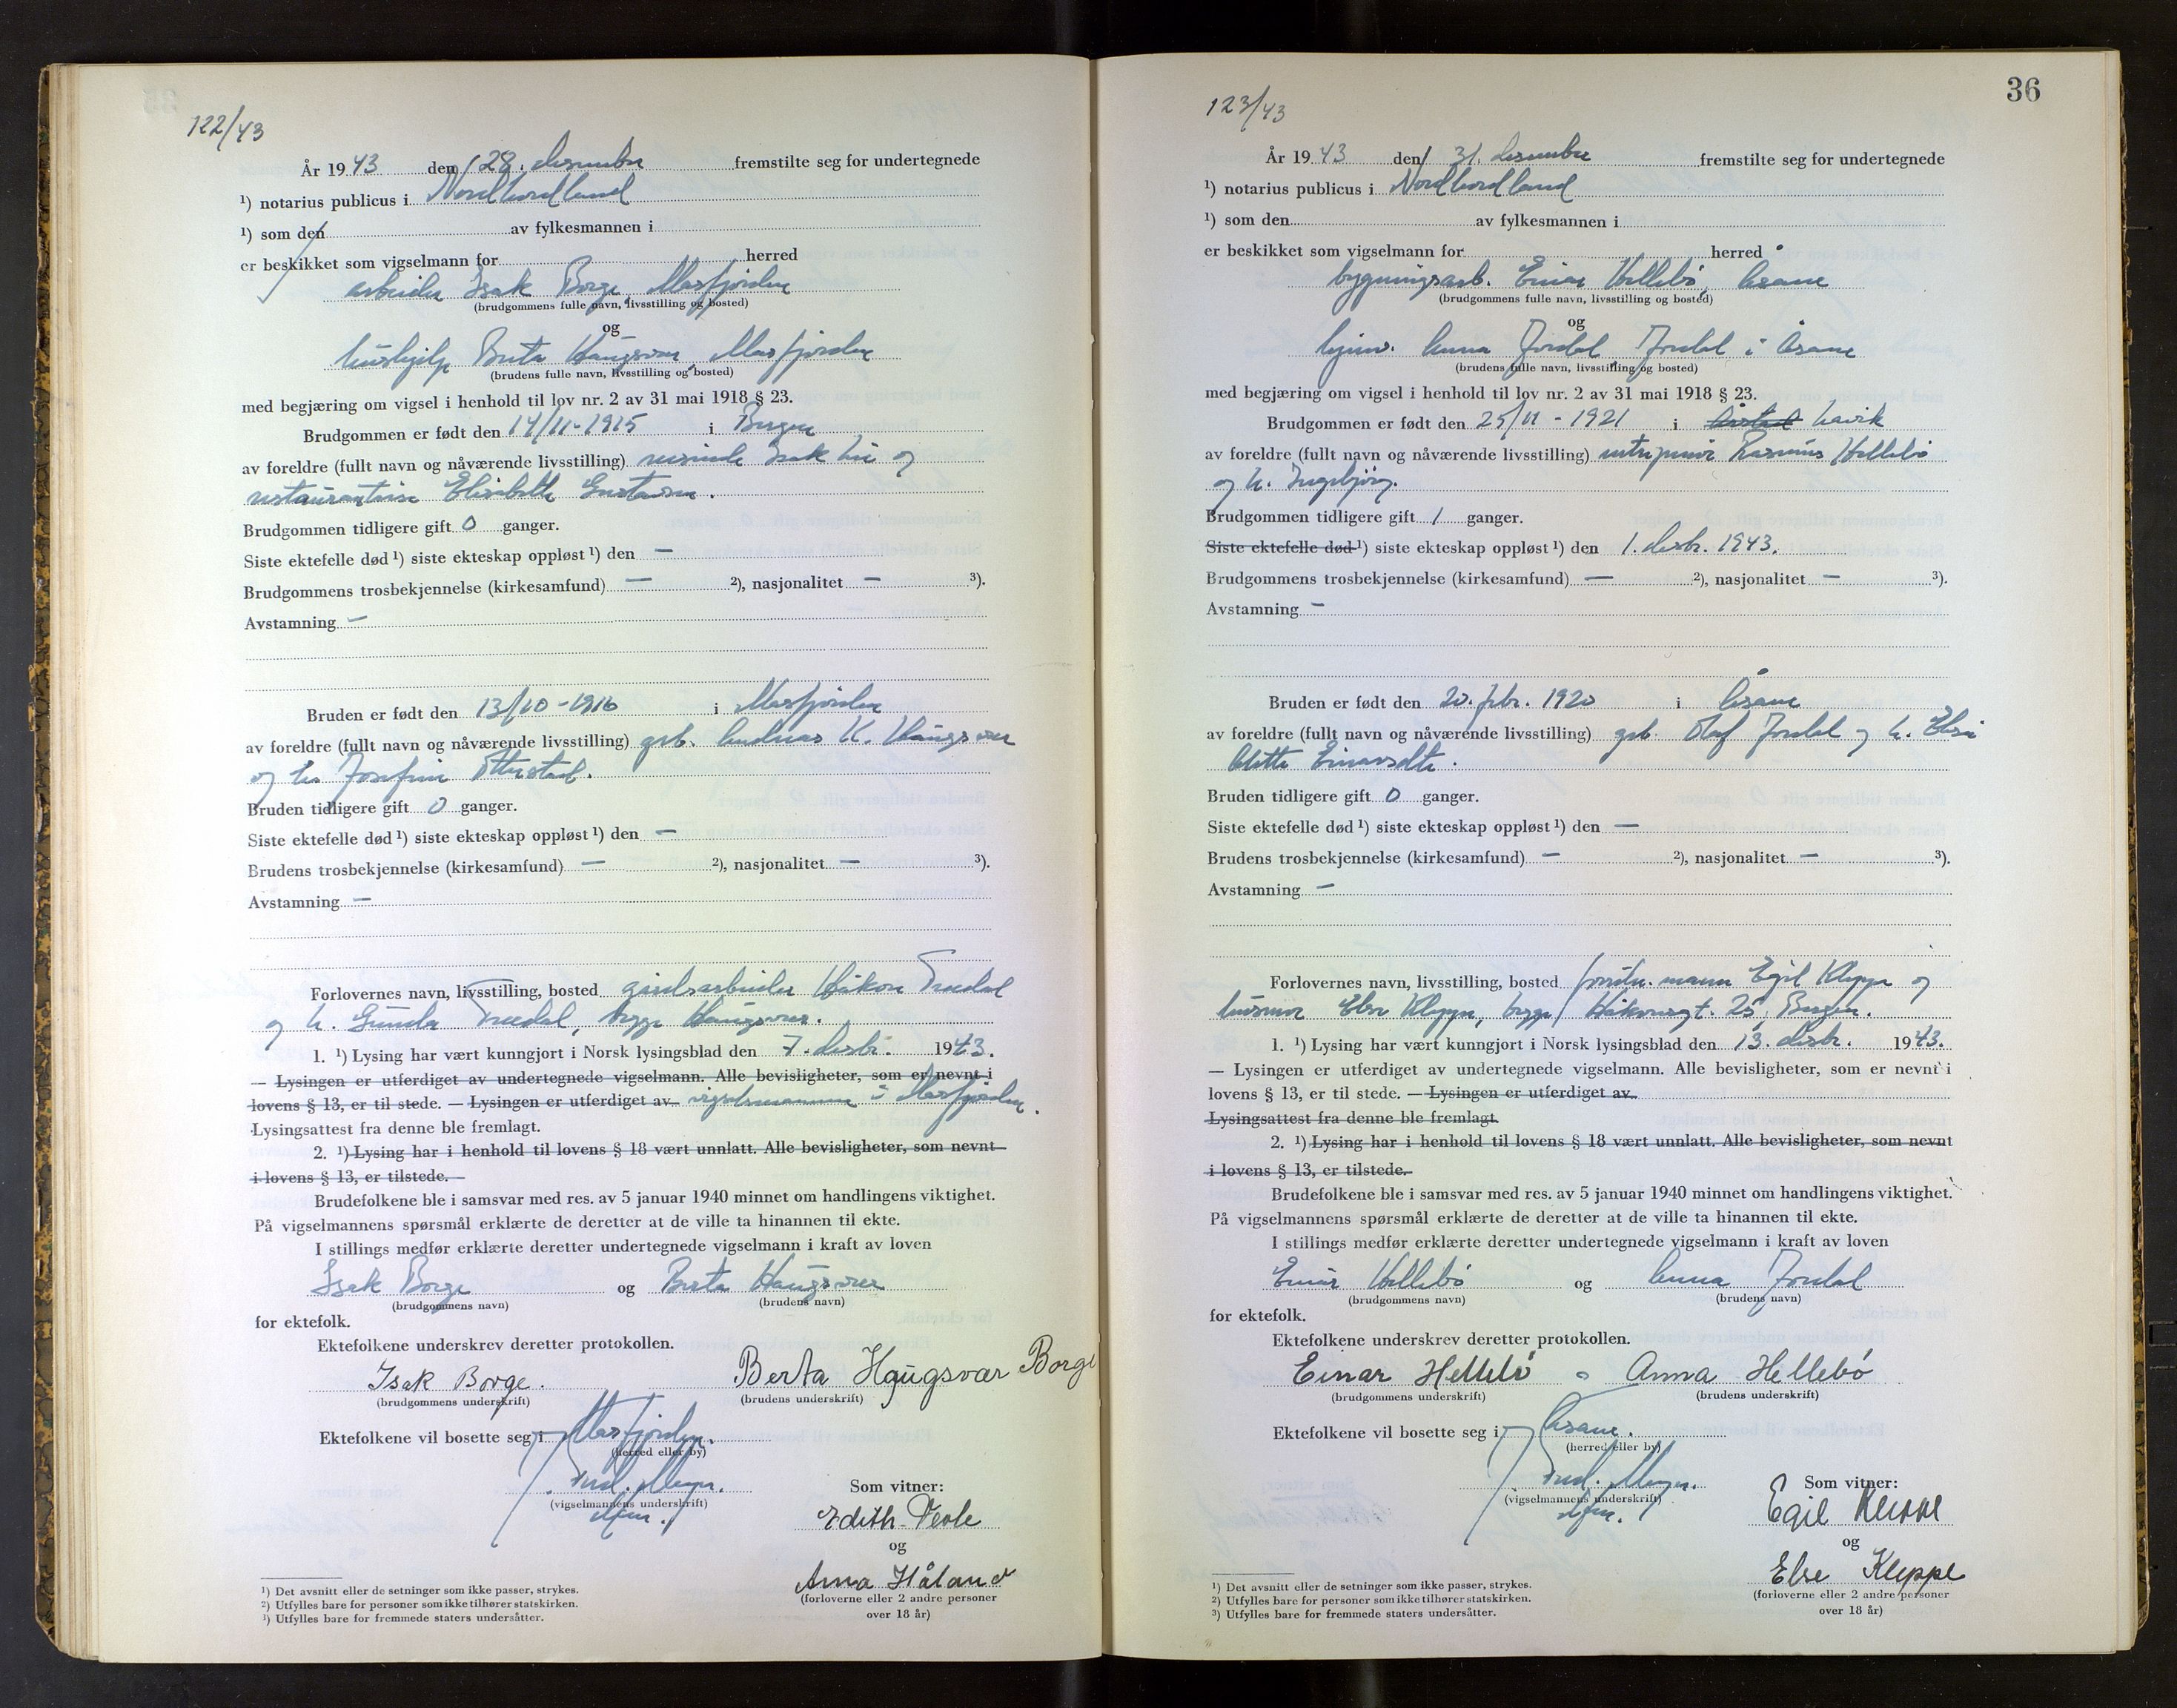 122/43
År 1943 den 28. desember fremstilte seg for undertegnede
¹) notarius publicus i Nordhordland
¹) som den av fylkesmannen i
er beskikket som vigselmann for herred
arbeider Isak Borge, Masfjorden
(brudgommens fulle navn, livsstilling og bosted)
og
hushjelp Berta Haugsvær, Masfjorden
(brudens fulle navn, livsstilling og bosted)
med begjæring om vigsel i henhold til lov nr. 2 av 31 mai 1918 § 23.
Brudgommen er født den 14/11-1915 i Bergen
av foreldre (fullt navn og nåværende livsstilling) reisende Isak Lie og
restauratrise Elisabeth Gustavsen.
Brudgommen tidligere gift 0 ganger.
Siste ektefelle død ¹) siste ekteskap oppløst ¹) den —
Brudgommens trosbekjennelse (kirkesamfund) — ²), nasjonalitet — ³).
Avstamning —
Bruden er født den 13/10-1916 i Masfjorden
av foreldre (fullt navn og nåværende livsstilling) grb. Andreas K. Haugsvær
og h. Josefine Otterstad.
Bruden tidligere gift 0 ganger.
Siste ektefelle død ¹) siste ekteskap oppløst ¹) den —
Brudens trosbekjennelse (kirkesamfund) — ²), nasjonalitet — ³).
Avstamning —
Forlovernes navn, livsstilling, bosted gårdsarbeider Håkon Tredal
og h. Gunda Tredal, begge Haugsvær.
1. ¹) Lysing har vært kunngjort i Norsk lysingsblad den 7. desbr. 1943.
— Lysingen er utferdiget av undertegnede vigselmann. Alle bevisligheter, som er nevnt i
lovens § 13, er til stede. — Lysingen er utferdiget av vigselsmannen i Masfjorden.
Lysingsattest fra denne ble fremlagt.
2. ¹) Lysing har i henhold til lovens § 18 vært unnlatt. Alle bevisligheter, som nevnt
i lovens § 13, er tilstede.
Brudefolkene ble i samsvar med res. av 5 januar 1940 minnet om handlingens viktighet.
På vigselmannens spørsmål erklærte de deretter at de ville ta hinannen til ekte.
I stillings medfør erklærte deretter undertegnede vigselmann i kraft av loven
Isak Borge og Berta Haugsvær
(brudgommens navn) (brudens navn)
for ektefolk.
Ektefolkene underskrev deretter protokollen.
Isak Borge. Berta Haugsvær Borge
(brudgommens underskrift) (brudens underskrift)
Ektefolkene vil bosette seg i Masfjorden.
(herred eller by)
Fred. Meyer.
(vigselmannens underskrift)
Som vitner:
Edith Veole
og
Anna Håland
(forloverne eller 2 andre personer
over 18 år)
¹) Det avsnitt eller de setninger som ikke passer, strykes.
²) Utfylles bare for personer som ikke tilhører statskirken.
³) Utfylles bare for fremmede staters undersåtter.
36
123/43
År 1943 den 31. desember fremstilte seg for undertegnede
¹) notarius publicus i Nordhordland
¹) som den av fylkesmannen i
er beskikket som vigselmann for herred
bygningsarb. Einar Hellebö, Åsane
(brudgommens fulle navn, livsstilling og bosted)
og
hjemv. Anna Jordal, Jordal i Åsane
(brudens fulle navn, livsstilling og bosted)
med begjæring om vigsel i henhold til lov nr. 2 av 31 mai 1918 § 23.
Brudgommen er født den 25/11 - 1921 i Årstad Lavik
av foreldre (fullt navn og nåværende livsstilling) entrepenör Rasmus Hellebö
og h. Ingebjörg.
Brudgommen tidligere gift 1 ganger.
Siste ektefelle død ¹) siste ekteskap oppløst ¹) den 1. desbr. 1943.
Brudgommens trosbekjennelse (kirkesamfund) — ²), nasjonalitet — ³).
Avstamning —
Bruden er født den 20. febr. 1920 i Åsane
av foreldre (fullt navn og nåværende livsstilling) grb. Olaf Jordal og h. Elise
Alette Einarsdtr.
Bruden tidligere gift 0 ganger.
Siste ektefelle død ¹) siste ekteskap oppløst ¹) den —
Brudens trosbekjennelse (kirkesamfund) — ²), nasjonalitet — ³).
Avstamning —
Forlovernes navn, livsstilling, bosted mann Egil Kleppe og
husmor Else Kleppe, begge Håkonsgt. 25, Bergen.
1. ¹) Lysing har vært kunngjort i Norsk lysingsblad den 13. desbr. 1943.
— Lysingen er utferdiget av undertegnede vigselmann. Alle bevisligheter, som er nevnt i
lovens § 13, er til stede. — Lysingen er utferdiget av
Lysingsattest fra denne ble fremlagt.
2. ¹) Lysing har i henhold til lovens § 18 vært unnlatt. Alle bevisligheter, som nevnt
i lovens § 13, er tilstede.
Brudefolkene ble i samsvar med res. av 5 januar 1940 minnet om handlingens viktighet.
På vigselmannens spørsmål erklærte de deretter at de ville ta hinannen til ekte.
I stillings medfør erklærte deretter undertegnede vigselmann i kraft av loven
Einar Hellebö og Anna Jordal
(brudgommens navn) (brudens navn)
for ektefolk.
Ektefolkene underskrev deretter protokollen.
Einar Hellebö Anna Hellebö
(brudgommens underskrift) (brudens underskrift)
Ektefolkene vil bosette seg i Åsane.
(herred eller by)
Fred. Meyer.
(vigselmannens underskrift)
Som vitner:
Egil Kleppe
og
Else Kleppe
(forloverne eller 2 andre personer
over 18 år)
¹) Det avsnitt eller de setninger som ikke passer, strykes.
²) Utfylles bare for personer som ikke tilhører statskirken.
³) Utfylles bare for fremmede staters undersåtter.